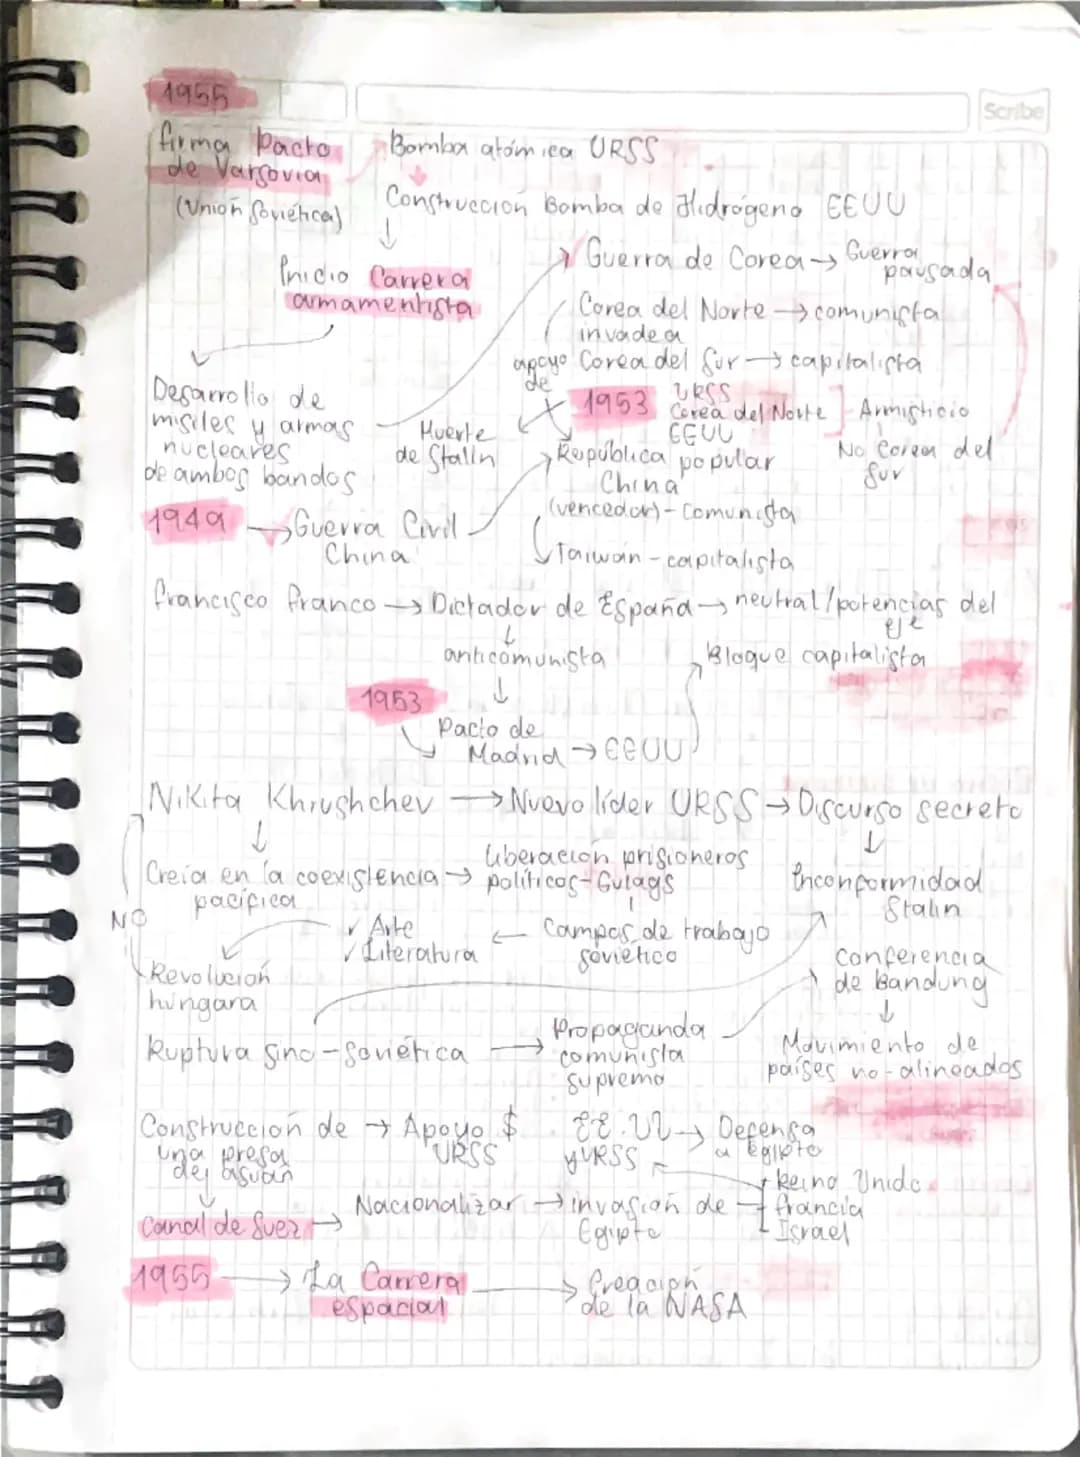 1955
Scribe
firma Pacto
de Varsovia
(Unión Soviética)
Bomba atómica URSS
Construcción Bomba de Hidrógeno EEUU
Inicio Carrera
armamentista
Guerra de Corea → Guerra
pausada
Corea del Norte → comunista
invade a
apoyo Corea del Sur → capitalista
de
Desarrollo de
misiles y armas
nucleares
de ambos bandos
Muerte
de Stalin
1953 URSS
Corea del Norte ] Armisticio
EEUU
No Corea del
Sur
República popular
China
(vencedor) - Comunista
1949 → Guerra Civil
China
Taiwán - capitalista
Francisco Franco → Dictador de España → neutral/potencias del
eje
anticomunista
Bloque capitalista
1953
Pacto de
Madrid → EEUU
Nikita Khrushchev → Nuevo líder URSS → Discurso secreto
Creía en la coexistencia → liberación prisioneros
pacífica
políticos - Gulags
Inconformidad
Stalin
NO
✓ Arte
✓ Literatura
← Campos de trabajo
soviético
Revolución
húngara
Conferencia
de Bandung
Ruptura sino-soviética → Propaganda
comunista
suprema
Movimiento de
países no-alineados
Construcción de → Apoyo $
una presa
dej asuán
URSS
EE.UU → Defensa
y URSS
a Egipto
Canal de Suez → Nacionalizar → invasión de
Egipto
Reino Unido
francia
Israel
1955 → La Carrera
espacial
→ Creación
de la NASA